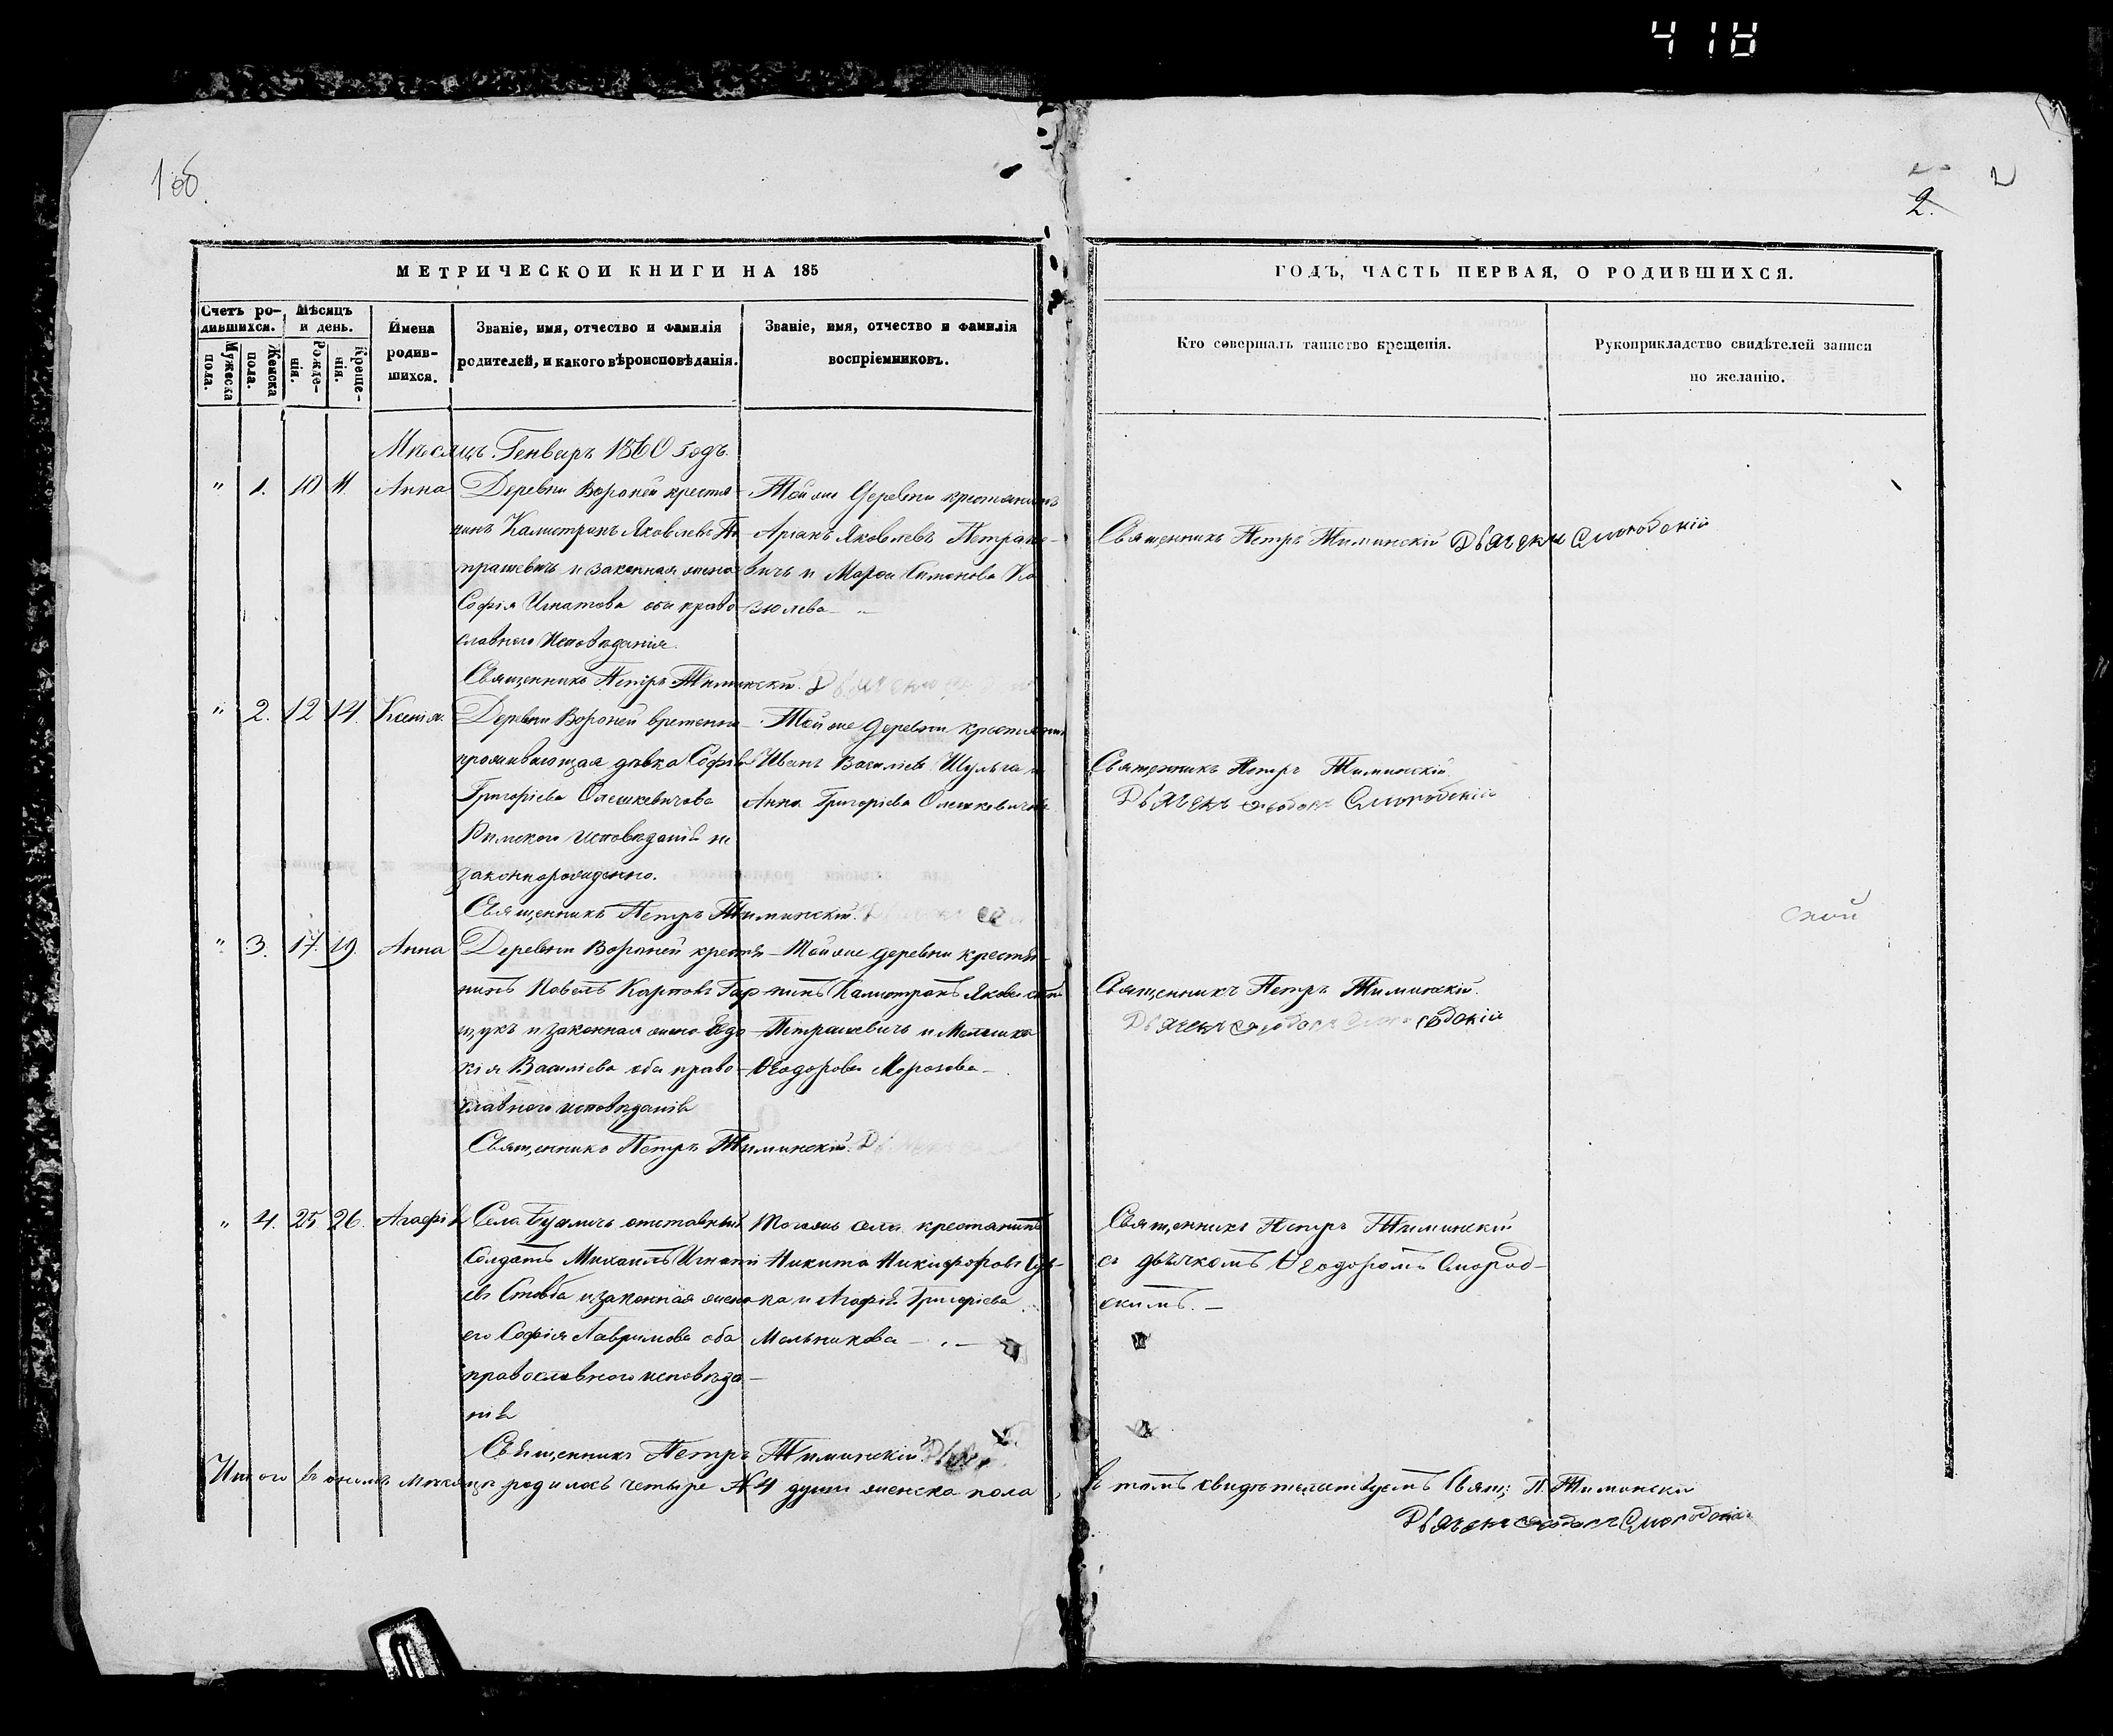 418
1 об.
2.
2
МЕТРИЧЕСКОЙ КНИГИ НА 185
ГОДЪ, ЧАСТЬ ПЕРВАЯ, О РОДИВШИХСЯ.
Счетъ ро-
дившихся.
Мужеска пола.
Женска пола.
Мѣсяцъ
и день.
Рожде-
нія.
Креще-
нія.
Имена
родив-
шихся.
Званіе, имя, отчество и фамилія
родителей, и какого вѣроисповѣданія.
Званіе, имя, отчество и фамилія
воспріемниковъ.
Кто совершалъ таинство крещенія.
Рукоприкладство свидѣтелей записи
по желанію.
Мѣсяцъ Генварь 1860 годъ.
" 1. 10 11. Анна
Деревни Вороней крестья-
нинъ Калистратъ Яковлевъ Пе-
трашевичъ и законная жена
Софія Игнатова оба право-
славного исповѣданія.
Священникъ Петръ Тиминскій.
Той же деревни крестьянинъ
Яковлевъ Петраше-
вичъ и Марфа Симонова Ко-
валева
Священникъ Петръ Тиминскій Дьячекъ Смогодскій
" 2. 12 14. Ксенія.
Деревни Вороней временно
проживающая дѣвка Софія
Григоріева Олешкевичова
Римского исповѣданія не
законнорожденно.
Священникъ Петръ Тиминскій.
Той же деревни крестьянинъ
Иванъ Василіевъ Шульга и
Анна Григоріева Олешкевичова
Священникъ Петръ Тиминскій.
Дьячекъ
ской
" 3. 17. 19. Анна
Деревни Вороней крестья-
нинъ Павелъ Карповъ Гар-
щукъ и законная жена Евдо-
кія Василіева оба право-
славного исповѣданія
Священникъ Петръ Тиминскій.
Той же деревни крестья-
нинъ Калистратъ Яковлевъ
Петрашевичъ и
Ѳеодорова Морозова
Священникъ Петръ Тиминскій.
Дьячекъ
" 4. 25 26. Агафія
Села отставный
Солдатъ Михаилъ Игнаті-
евъ и законная жена
его Софія оба
православного исповѣда-
нія
Священникъ Петръ Тиминскій.
Тогожъ села крестьянинъ
Никита Никифоровъ
и Агафія Григоріева
Мельникова
Священникъ Петръ Тиминскій
съ дьячкомъ Ѳеодоромъ Смогод-
скимъ.
Итого въ ономъ мѣсяцѣ родилось четыре № 4 души женска пола,
въ томъ свидѣтельствуемъ Свящ: П. Тиминскій
Дьячекъ